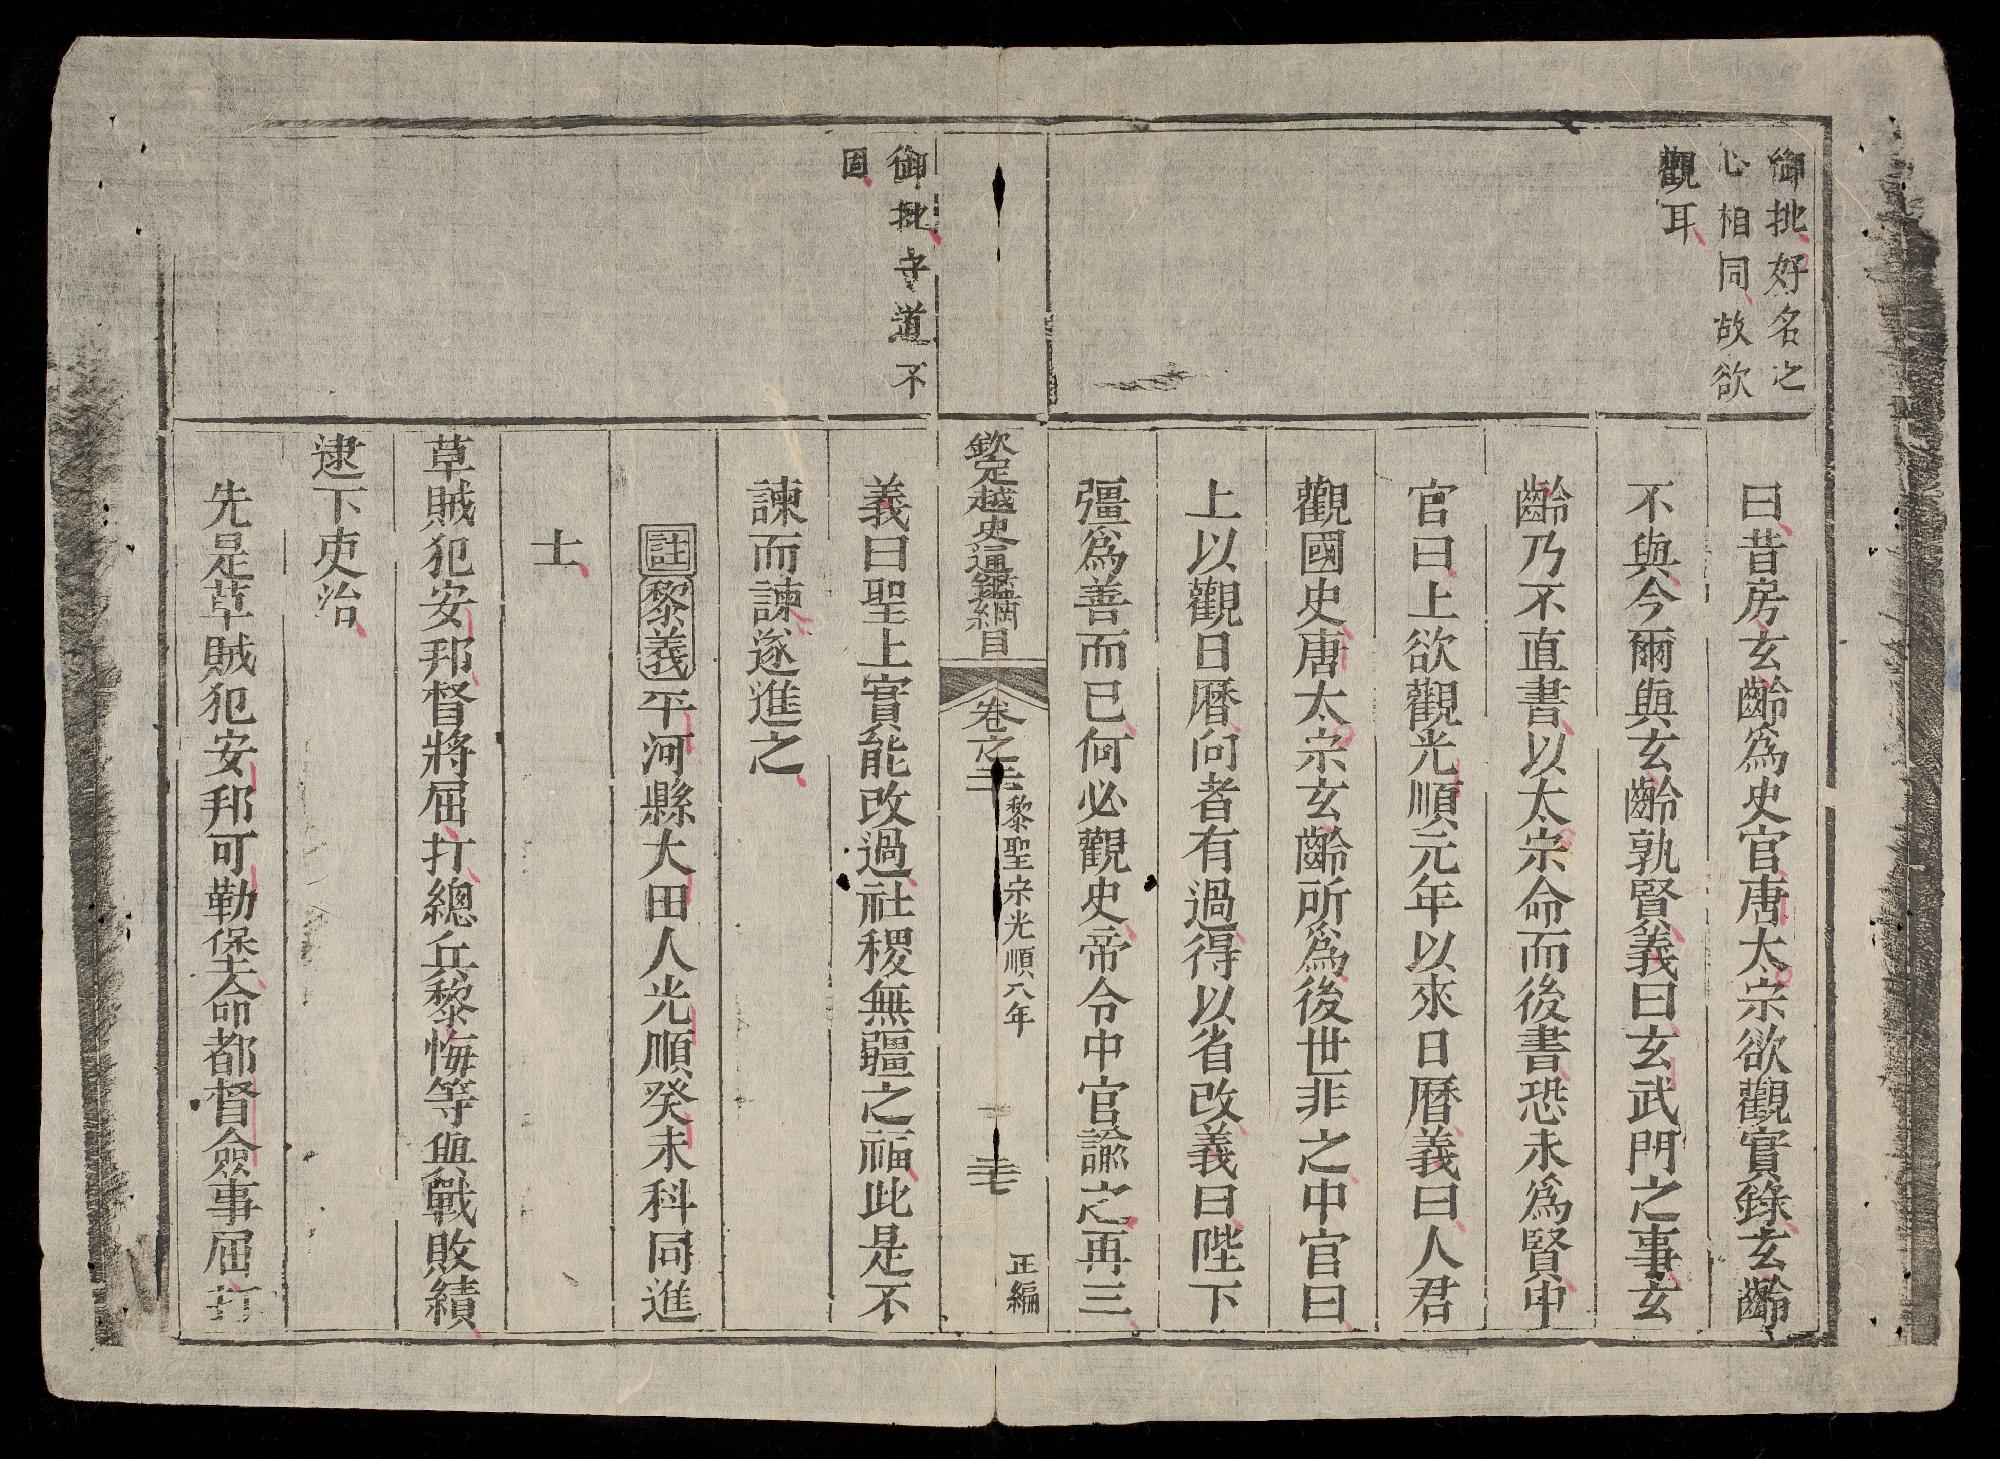 御批好名之
心相同故欲
觀耳
曰昔房玄齡為史官唐太宗欲觀實錄玄齡
不與今爾與玄齡孰賢義曰玄武門之事玄
齡乃不直書以太宗命而後書恐未為賢中
官曰上欲觀光順元年以來日曆義曰人君
觀國史唐太宗玄齡所為後世非之中官曰
上以觀日曆向者有過得以省改義曰陛下
彊為善而已何必觀史帝令中官諭之再三
欽定越史通鑑綱目 卷之二十 黎聖宗光順八年 三十七 正編
御批守道不
固
義曰聖上實能改過社稷無疆之福此是不
諫而諫遂進之
註黎義平河縣大田人光順癸未科同進
士
草賊犯安邦督將屈打總兵黎悔等與戰敗績
逮下吏治
先是草賊犯安邦可勒堡命都督僉事屈打